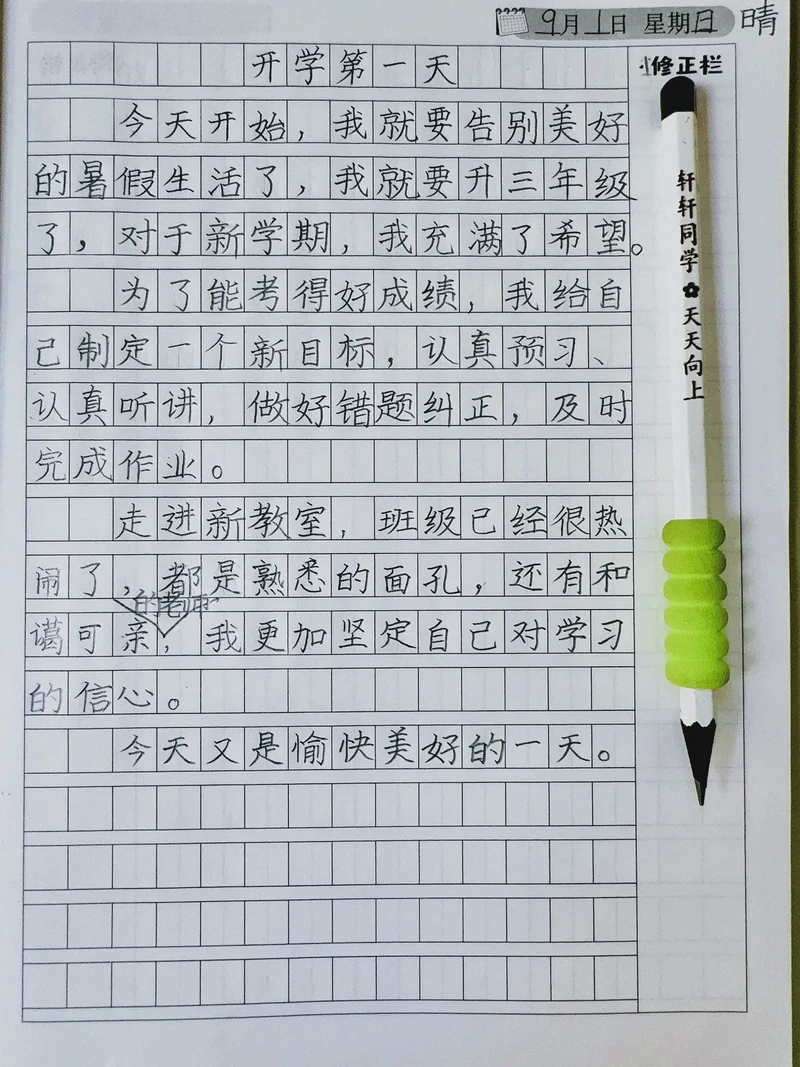 9月1日 星期日 晴
修正栏
开学第一天
今天开始，我就要告别美好
的暑假生活了，我就要升三年级
了，对于新学期，我充满了希望。
为了能考得好成绩，我给自
己制定一个新目标，认真预习、
认真听讲，做好错题纠正，及时
完成作业。
走进新教室，班级已经很热
闹了，都是熟悉的面孔，还有和
的老师
蔼可亲，我更加坚定自己对学习
的信心。
今天又是愉快美好的一天。
轩轩同学✿天天向上